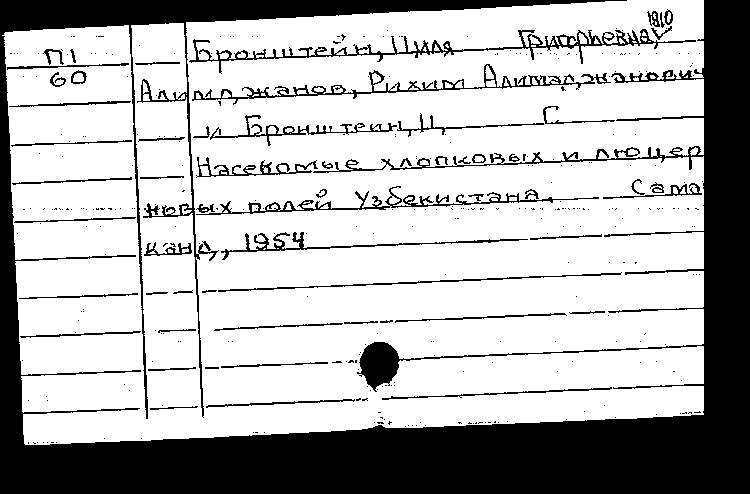 1910
П1 Бронштейн, Циля Григорьевна,
60 Алимджанов, Рихим Алимджанович
и Бронштейн, Ц. Г.
Насекомые хлопковых и люцер
новых полей Узбекистана. Сама
канд, 1954